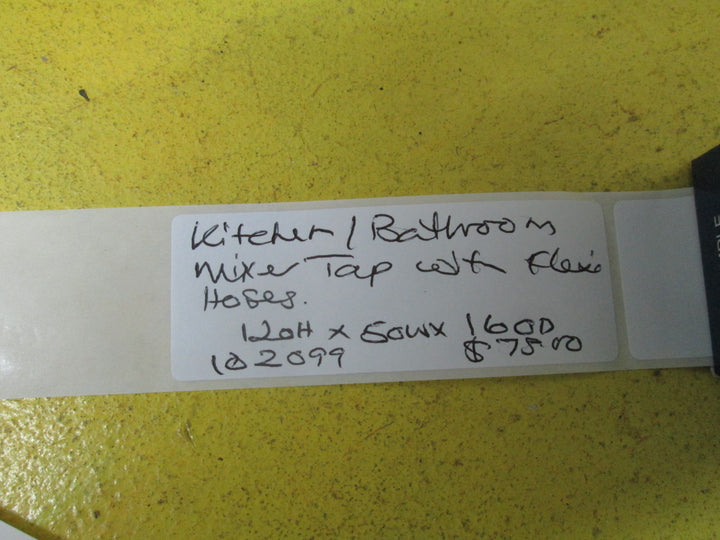 Kitchen / Bathroom
Mixer Tap with Flexi
Hoses.
120H x 50W x 160D
102099 $75.00